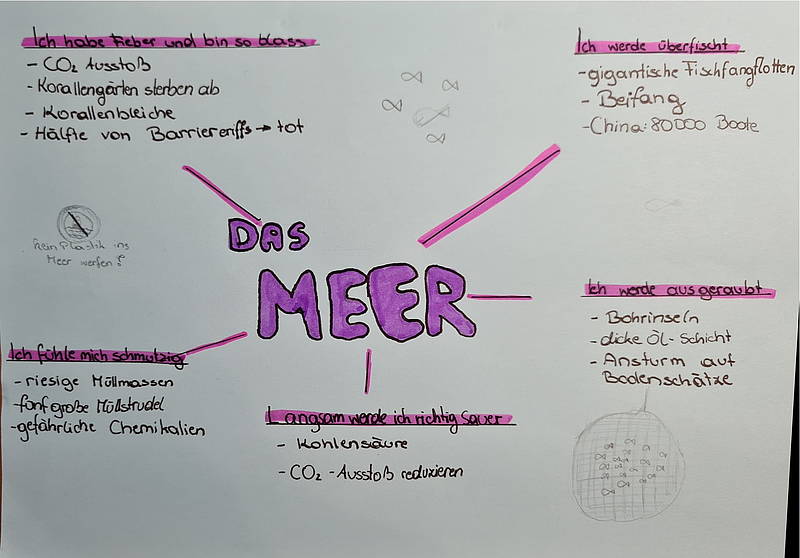 Ich habe Fieber und bin so blass
- CO₂ Ausstoß
- Korallengärten sterben ab
- Korallenbleiche
- Hälfte von Barriereriffs → tot
Ich werde überfischt
- gigantische Fischfangflotten
- Beifang
- China: 80000 Boote
kein Plastik ins
Meer werfen!
DAS
MEER
Ich werde ausgeraubt
- Bohrinseln
- dicke Öl-Schicht
- Ansturm auf
Bodenschätze
Ich fühle mich schmutzig
- riesige Müllmassen
- fünf große Müllstrudel
- gefährliche Chemikalien
Langsam werde ich richtig sauer
- Kohlensäure
- CO₂ -Ausstoß reduzieren